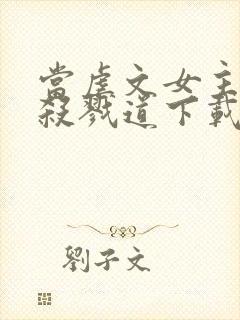 當虐文女主
殺戮道下載
劉子文